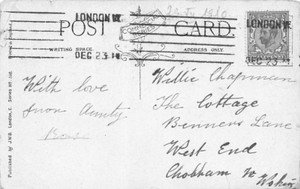 LONDON.W.
POST CARD.
LONDON.W.
WRITING SPACE.
ADDRESS ONLY.
DEC 23
DEC 23
With love
from
Willie Chapman
The Cottage
Benners Lane
West End
Chobham
Woking
Published by J.W.B. London, E.